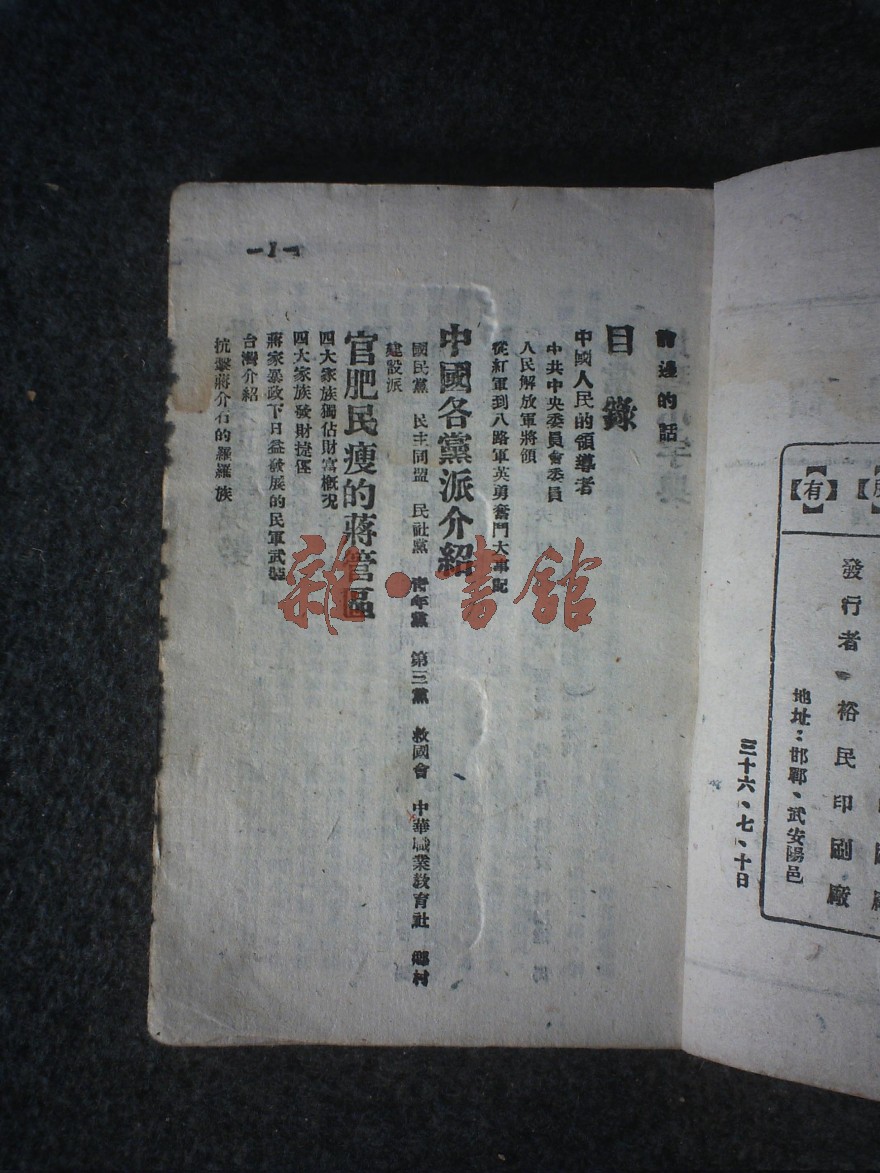 前邊的話
目錄
中國人民的領導者
中共中央委員會委員
人民解放軍將領
從紅軍到八路軍英勇奮鬥大事記
中國各黨派介紹
國民黨 民主同盟 民社黨 青年黨 第三黨 救國會 中華職業教育社 鄉村
建設派
官肥民瘦的蔣管區
四大家族獨佔財富概況
四大家族發財捷徑
蔣家暴政下日益發展的民軍武裝
台灣介紹
抗擊蔣介石的羅羅族
—1—
雜·書館
【有】
發行者 裕民印刷廠
地址：邯鄲、武安陽邑
三十六、七、十日